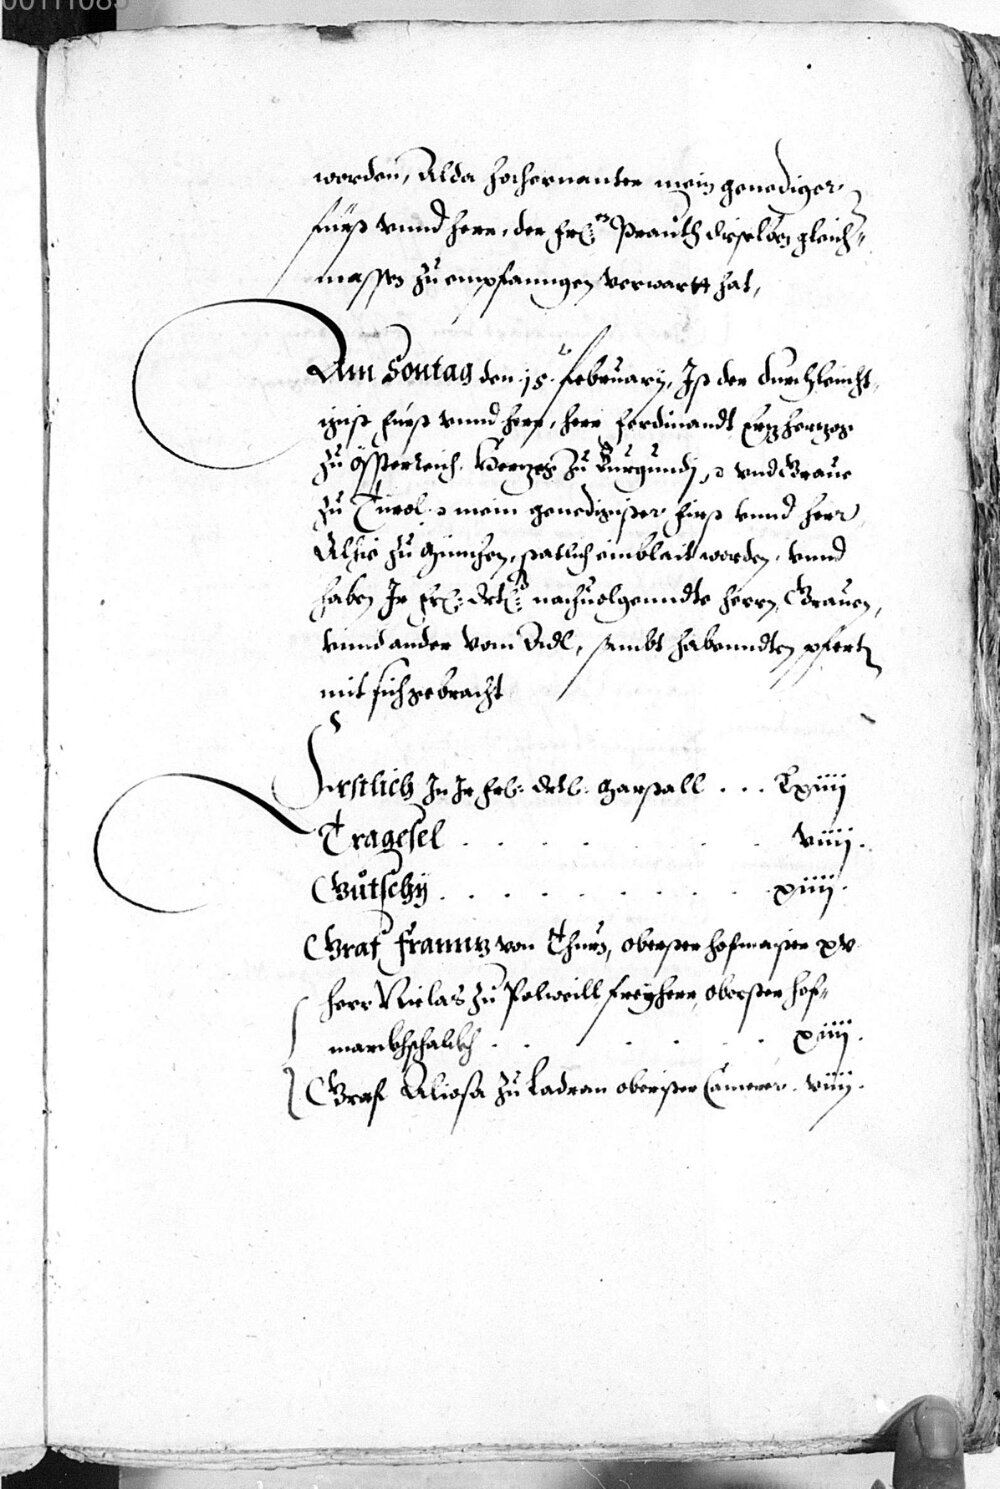 00111085
worden, Alda hochernanter mein genediger
fürst vnnd herr, der Frl: en Prauth diselben gleich-
massen zu empfanngen verwartt hat,
Am Sontag den 15. february, Ist der durchleicht-
igist fürst vnnd herr, herr ferdinandt Ertzhertzog
zu Össterreich. Hertzog zu Burgundj, vnd Graue
zu Tirol mein genedigister fürst vnnd herr
Alhie zu München, statlich einblait worden. vnnd
haben Ir Frl: drtl: nachuolgenndte herrn, Grauen,
vnnd ander vom Adl, sambt habenndten pferten
mit sich gebracht
Erstlich In Ir Frl: drtl: Marstall . . . Lxiiij
Tragesel . . . . . . . viiij.
Gutschy . . . . . . . . xiiij.
Graf Franntz von Thurn, obersster hofmaister xv.
herr Niclas zu Polweill freyherr, oberster hof-
marckhschalckh . . . . . xiiij.
Graf Aluisa zu Ladran oberister Camerer. viiij.